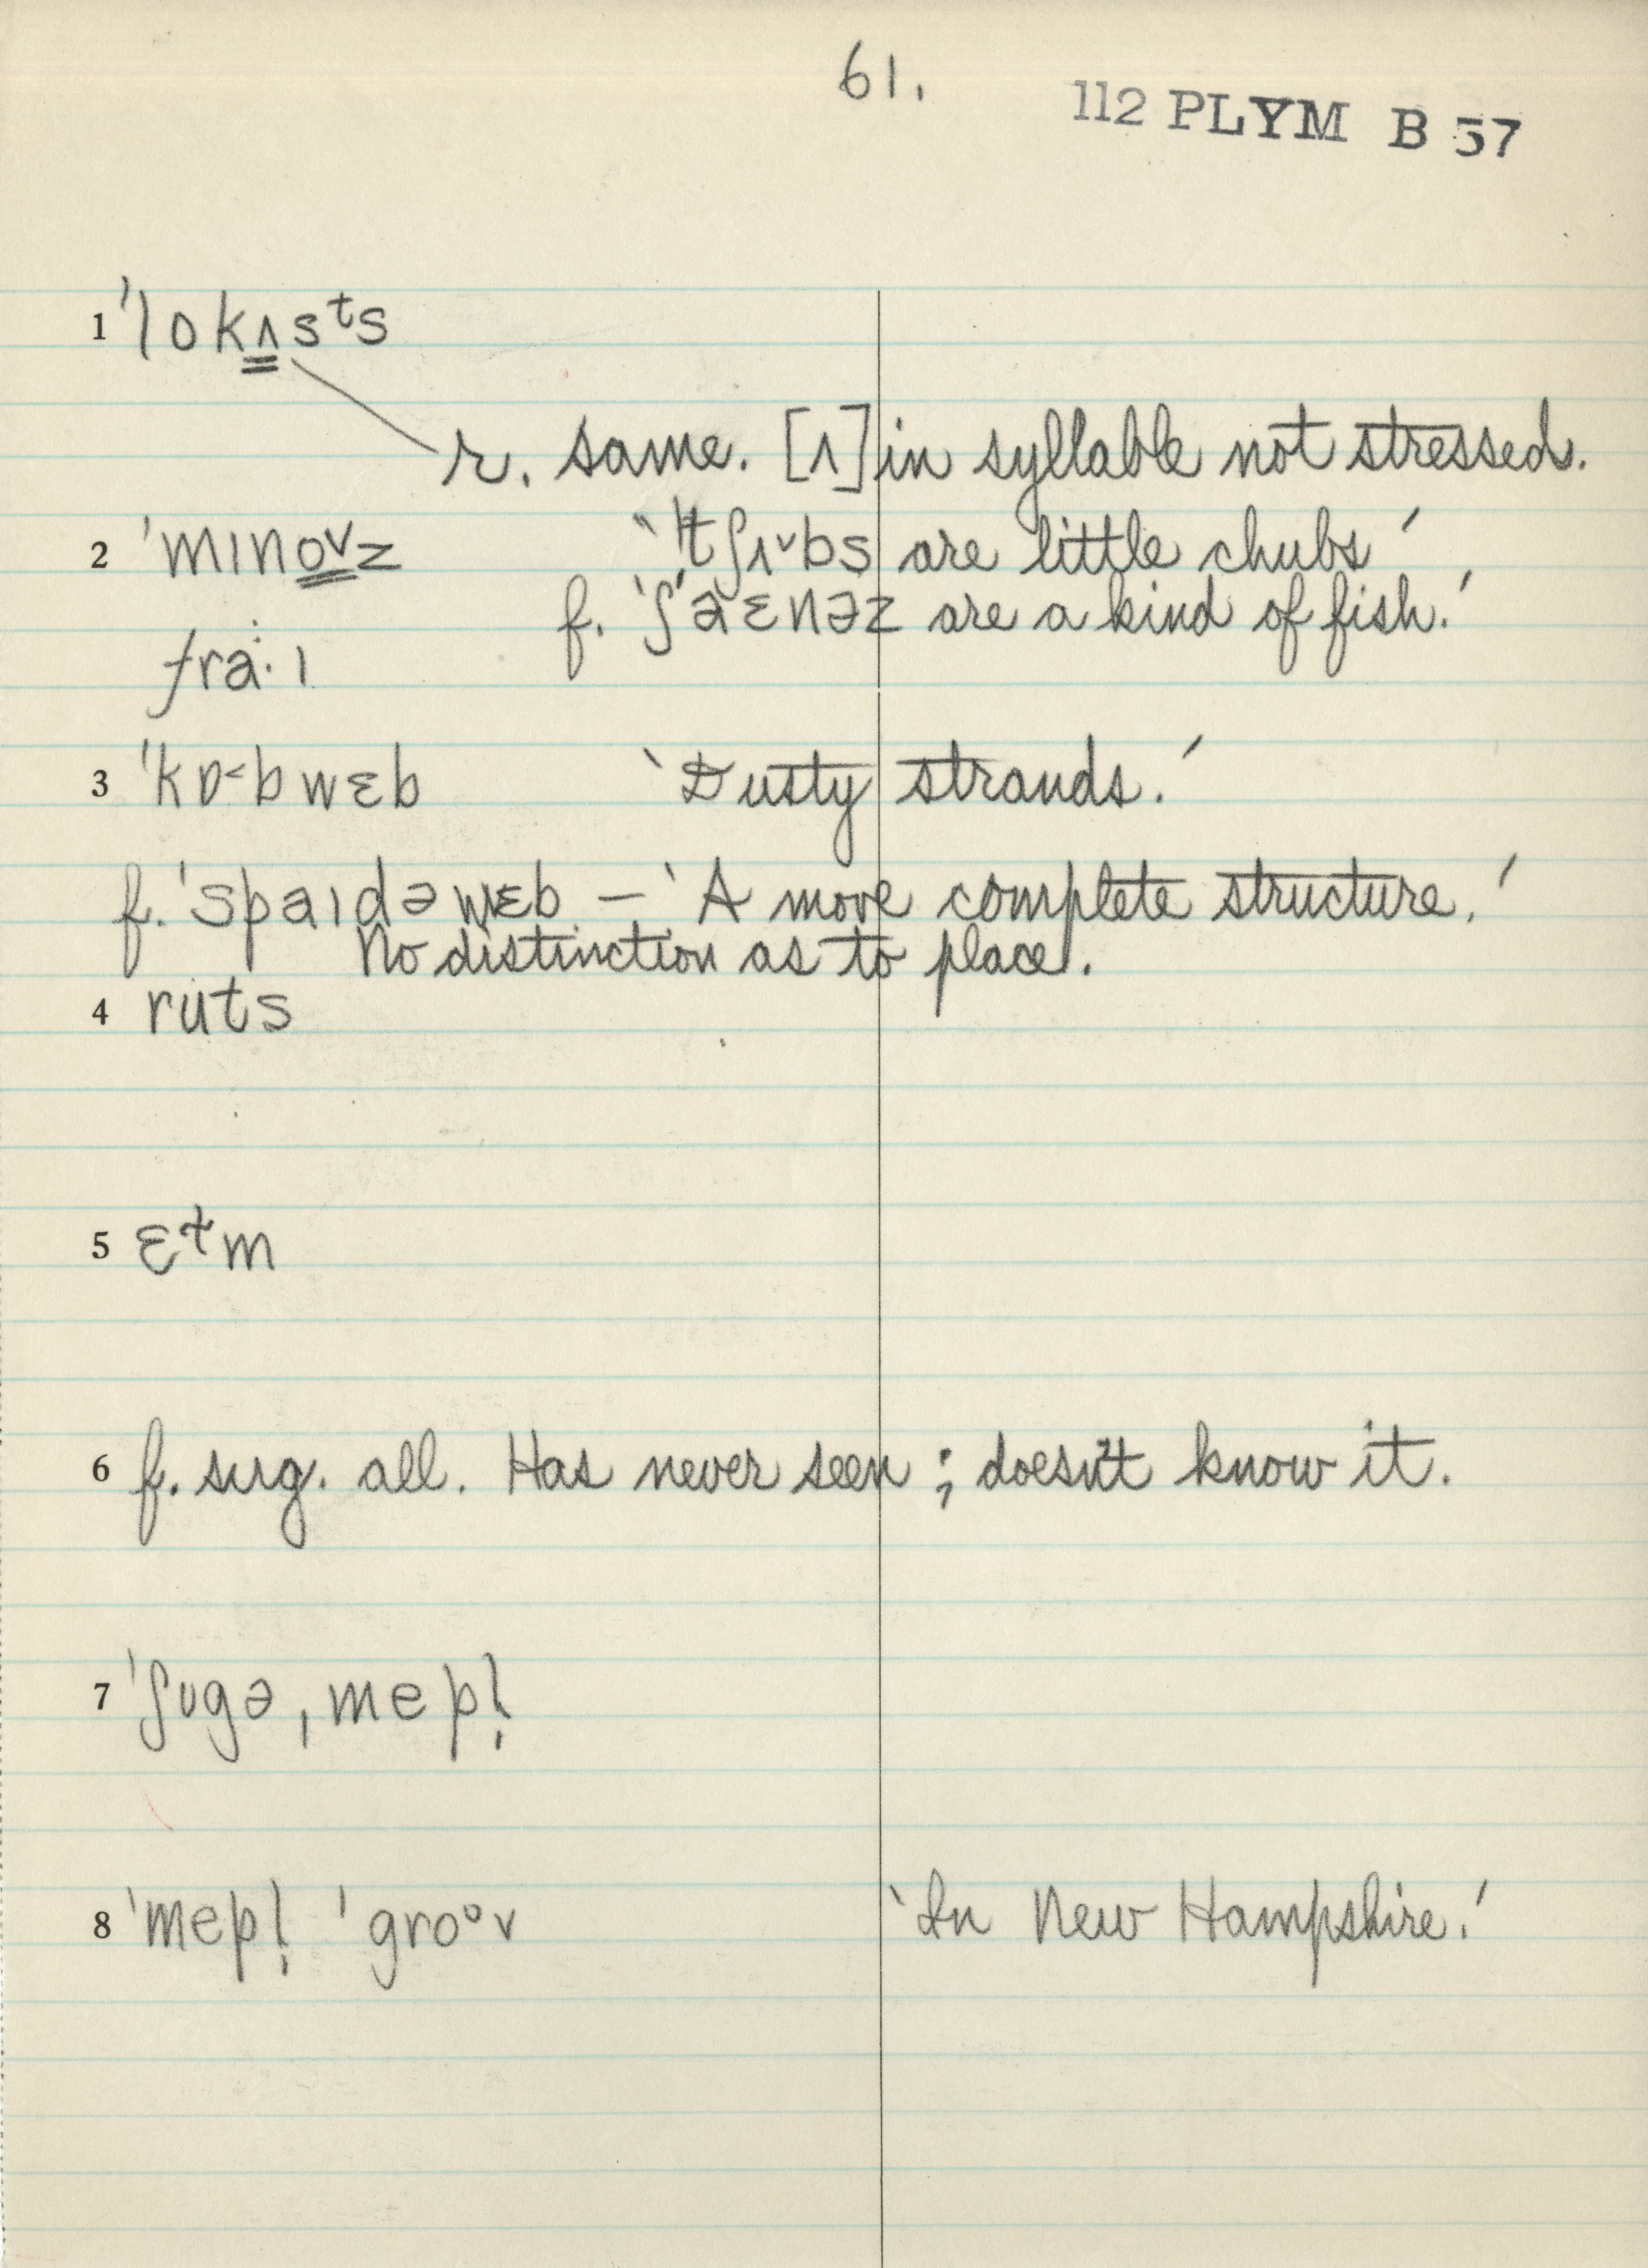 61.
112 PLYM B 57
1 ˈlokʌsᵗs
r. same. [ʌ] in syllable not stressed.
2 ˈmɪnoᵛz ‘ˈtʃɪᵛbs are little chubs’
f. ‘ʃaɛnəz are a kind of fish.’
fra·ɪ
3 ˈkɒ˂bwɛb ‘Dusty strands.’
f. ˈspaɪdəwɛb – ‘A more complete structure.’
No distinction as to place.
4 ruts
5 ɛɫm
6 f. sug. all. Has never seen ; doesn't know it.
7 ˈʃʊgəˌmepl̩
8 ˈmepl̩ ˈgroᵒv ‘In New Hampshire.’